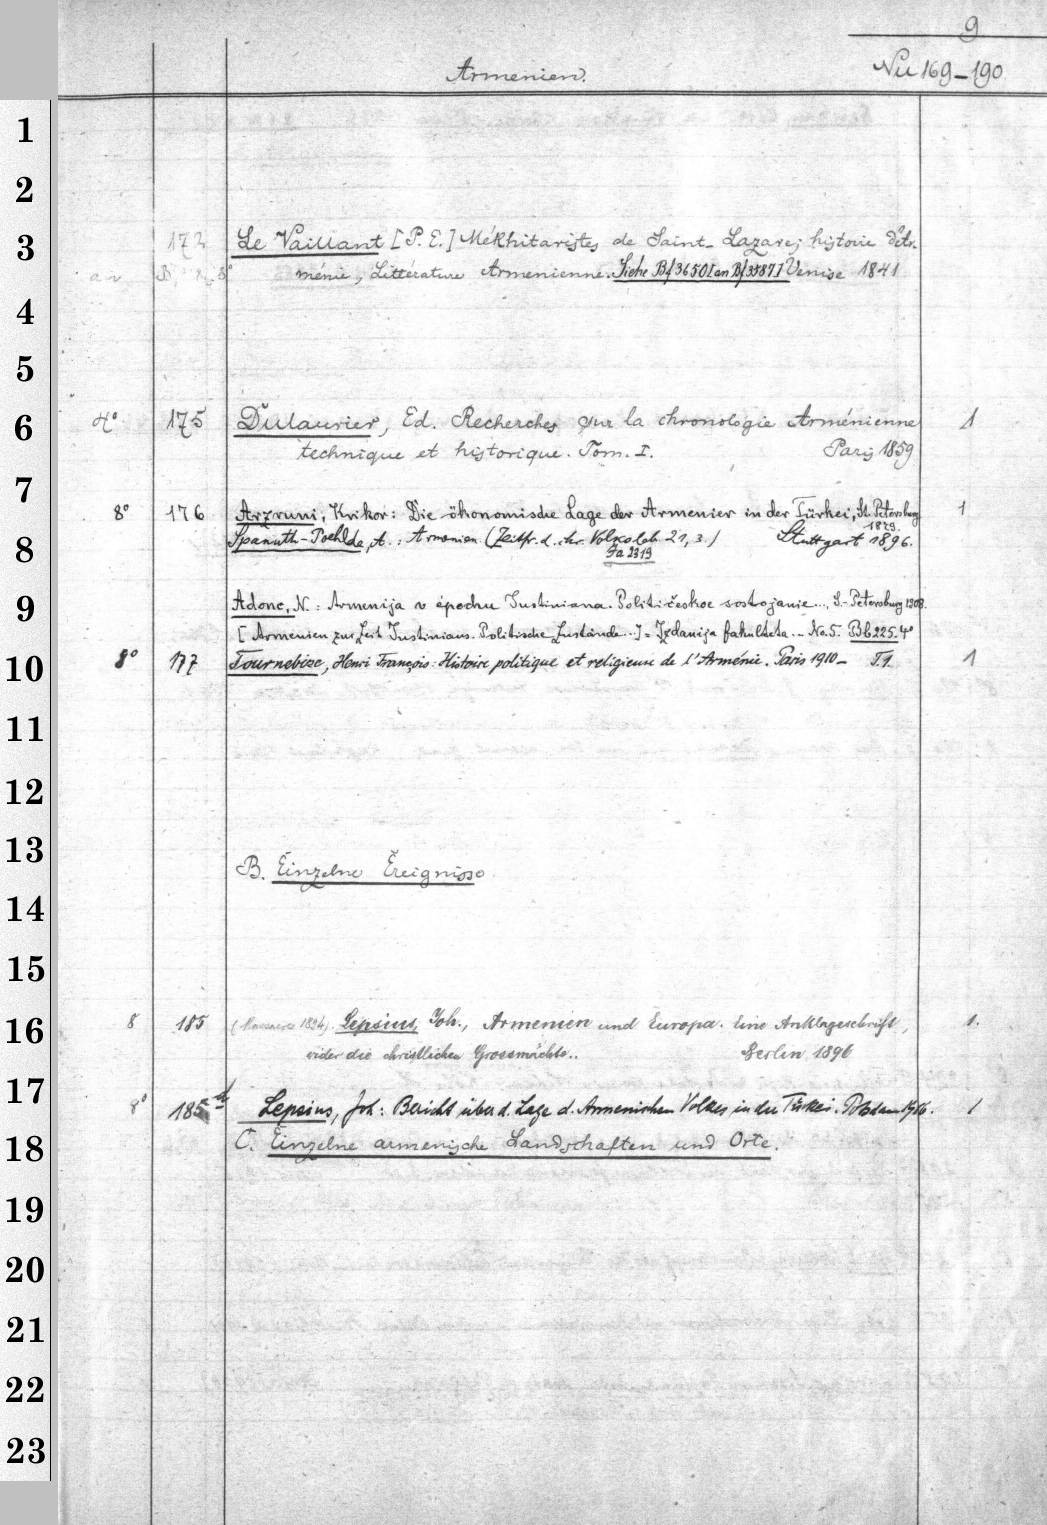 9
Armenien.
Nu 169-190
1
2
3
4
5
6
7
8
9
10
11
12
13
14
15
16
17
18
19
20
21
22
23
172 Le Vaillant [P. E.] Mékhitaristes de Saint-Lazare; histoire d'Ar-
ménie, Littérature Armenienne. Siehe Bf 3650I an Bf 3587I Venise 1841
4° 175 Dulaurier, Ed. Recherches sur la chronologie Arménienne 1
technique et historique. Tom. I. Paris 1859
8° 176 Arzruni, Krikor: Die ökonomische Lage der Armenier in der Türkei, St. Petersburg 1879. 1
Spanuth-Poehlde, A.: Armenien (Zeitfr. d. chr. Volksleb. 21, 3.) Stuttgart 1896.
Fa 2319
Adonc, N.: Armenija v épochu Justiniana. Političeskoe sostojanie..., S.-Petersburg 1908.
[Armenien zur Zeit Justinians. Politische Zustände...] = Izdanija fakulteta... No. 5. Bb 225. 4°
8° 177 Tournebize, Henri François: Histoire politique et religieuse de l'Arménie. Paris 1910- T. 1. 1
B. Einzelne Ereignisse
8 185 (Massacres 1894). Lepsius, Joh., Armenien und Europa. Eine Anklageschrift, 1.
wider die christlichen Grossmächte.. Berlin 1896
8° 185 d Lepsius, Joh: Bericht über d. Lage d. Armenischen Volkes in der Türkei. Potsdam 1916. 1
C. Einzelne armenische Landschaften und Orte.